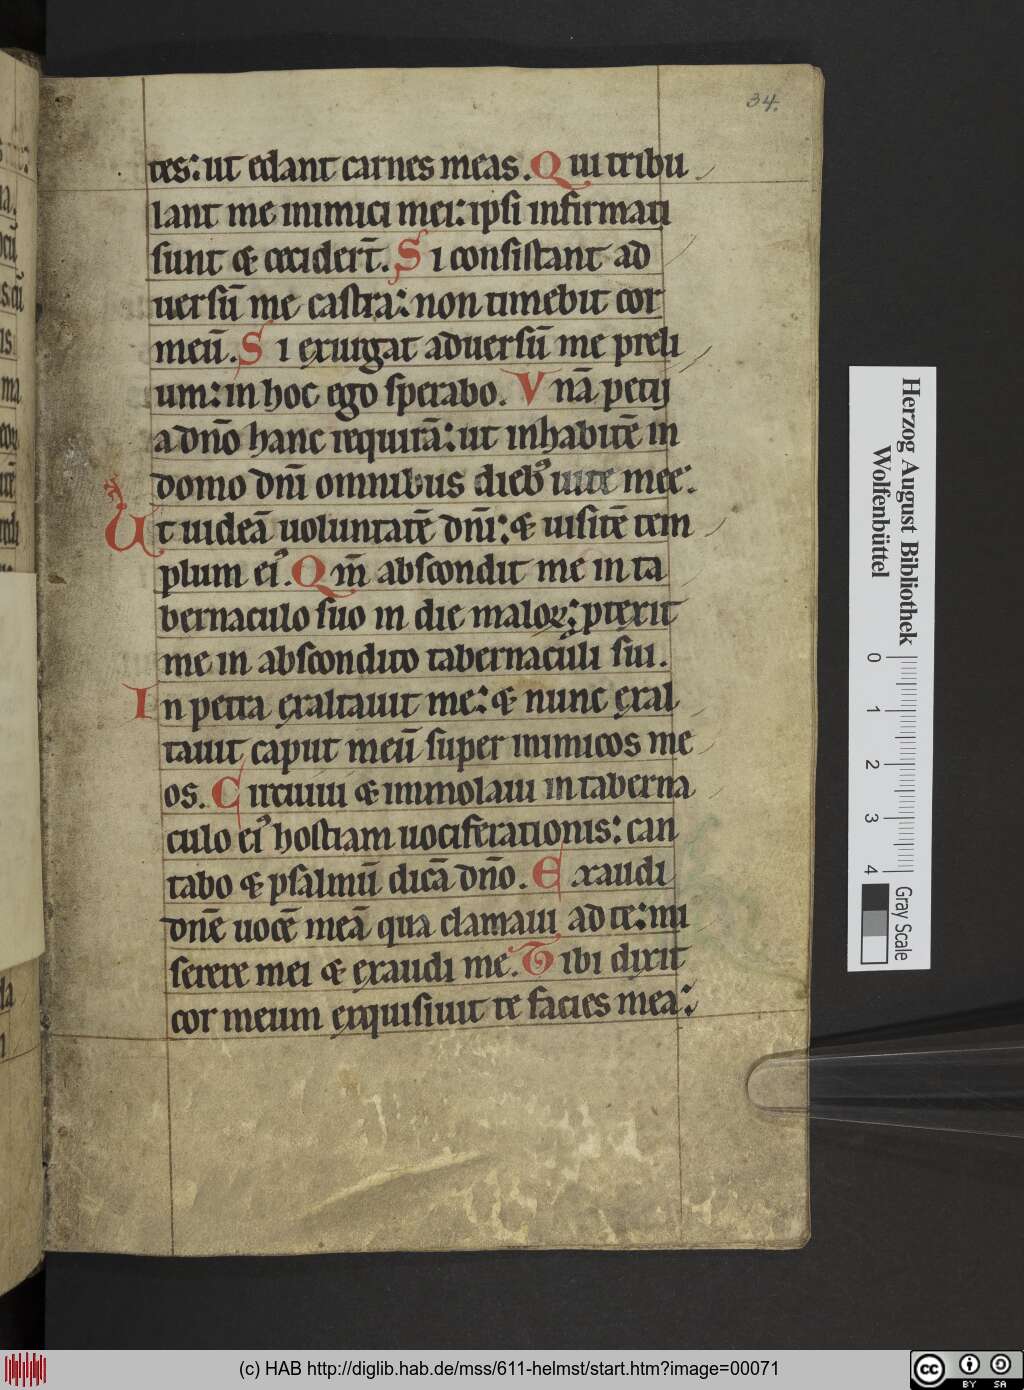 34.
tes: ut edant carnes meas. Qui tribu
lant me inimici mei: ipsi infirmati
sunt & ceciderт̄. Si consistant ad
uersū me castra: non timebit cor
meū. Si exurgat aduersū me preli
um: in hoc ego sperabo. Vnā petij
a dn̄o hanc requirā: ut inhabitē in
domo dn̄i omnibus dieb᾿ uite mee:
Ut uideā uoluntatē dn̄i: & uisitē tem
plum ei᾿. Qm̄ abscondit me in ta
bernaculo suo in die maloꝝ: ꝓtexit
me in abscondito tabernaculi sui.
In petra exaltauit me: & nunc exal
tauit caput meū super inimicos me
os. Circuiui & immolaui in taberna
culo ei᾿ hostiam uociferationis: can
tabo & psalmū dicā dn̄o. Exaudi
dn̄e uocē meā qua clamaui ad te: mi
serere mei & exaudi me. Tibi dixit
cor meum exquisiuit te facies mea:
Herzog August Bibliothek
Wolfenbüttel
0 1 2 3 4
Gray Scale
(c) HAB http://diglib.hab.de/mss/611-helmst/start.htm?image=00071
cc BY SA